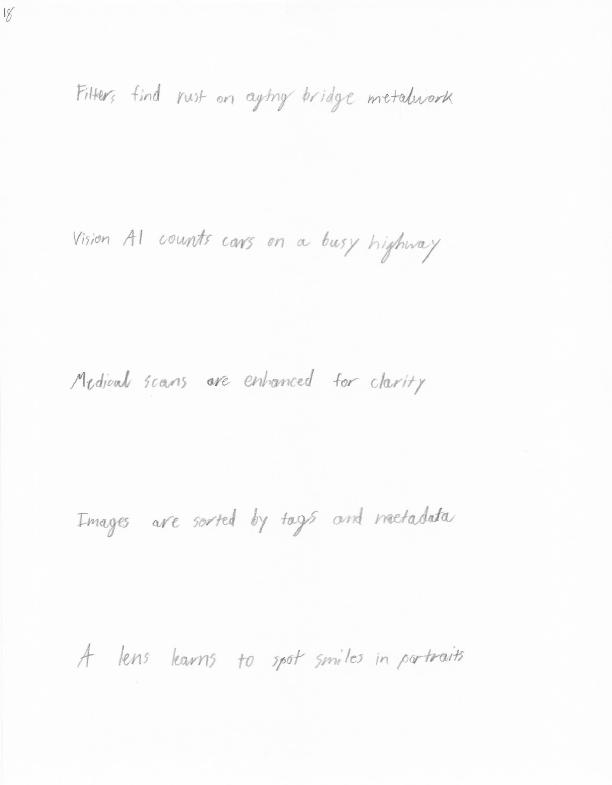 18
Filters find rust on aging bridge metalwork
Vision AI counts cars on a busy highway
Medical scans are enhanced for clarity
Images are sorted by tags and metadata
A lens learns to spot smiles in portraits